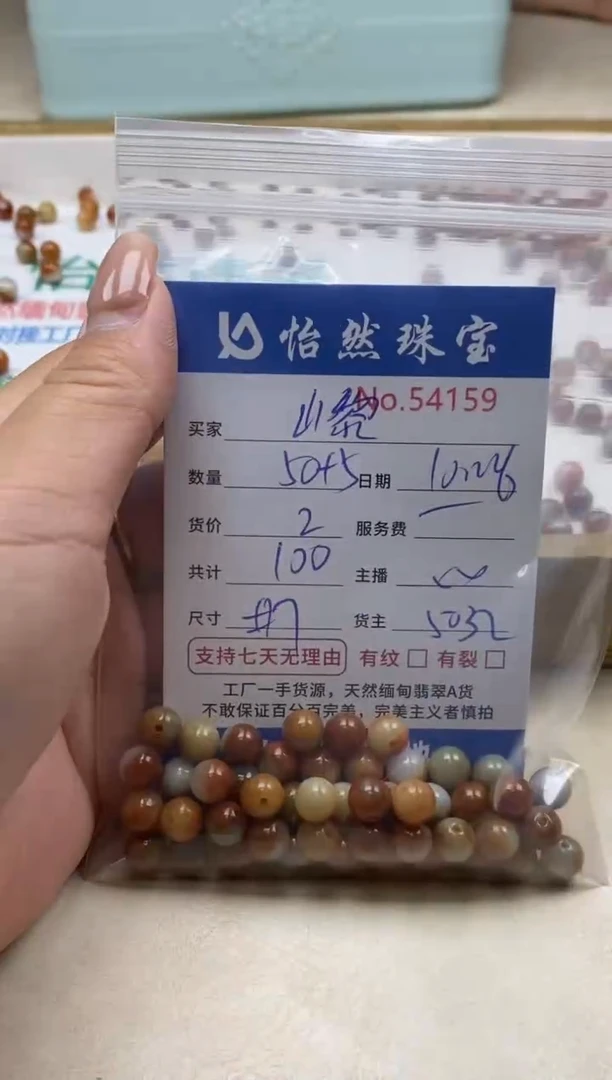 怡然珠宝
No.54159
买家
数量 50+5 日期
货价 2 服务费
共计 100 主播
尺寸 #7 货主 5032
支持七天无理由 有纹 □ 有裂 □
工厂一手货源，天然缅甸翡翠A货
不敢保证百分百完美，完美主义者慎拍